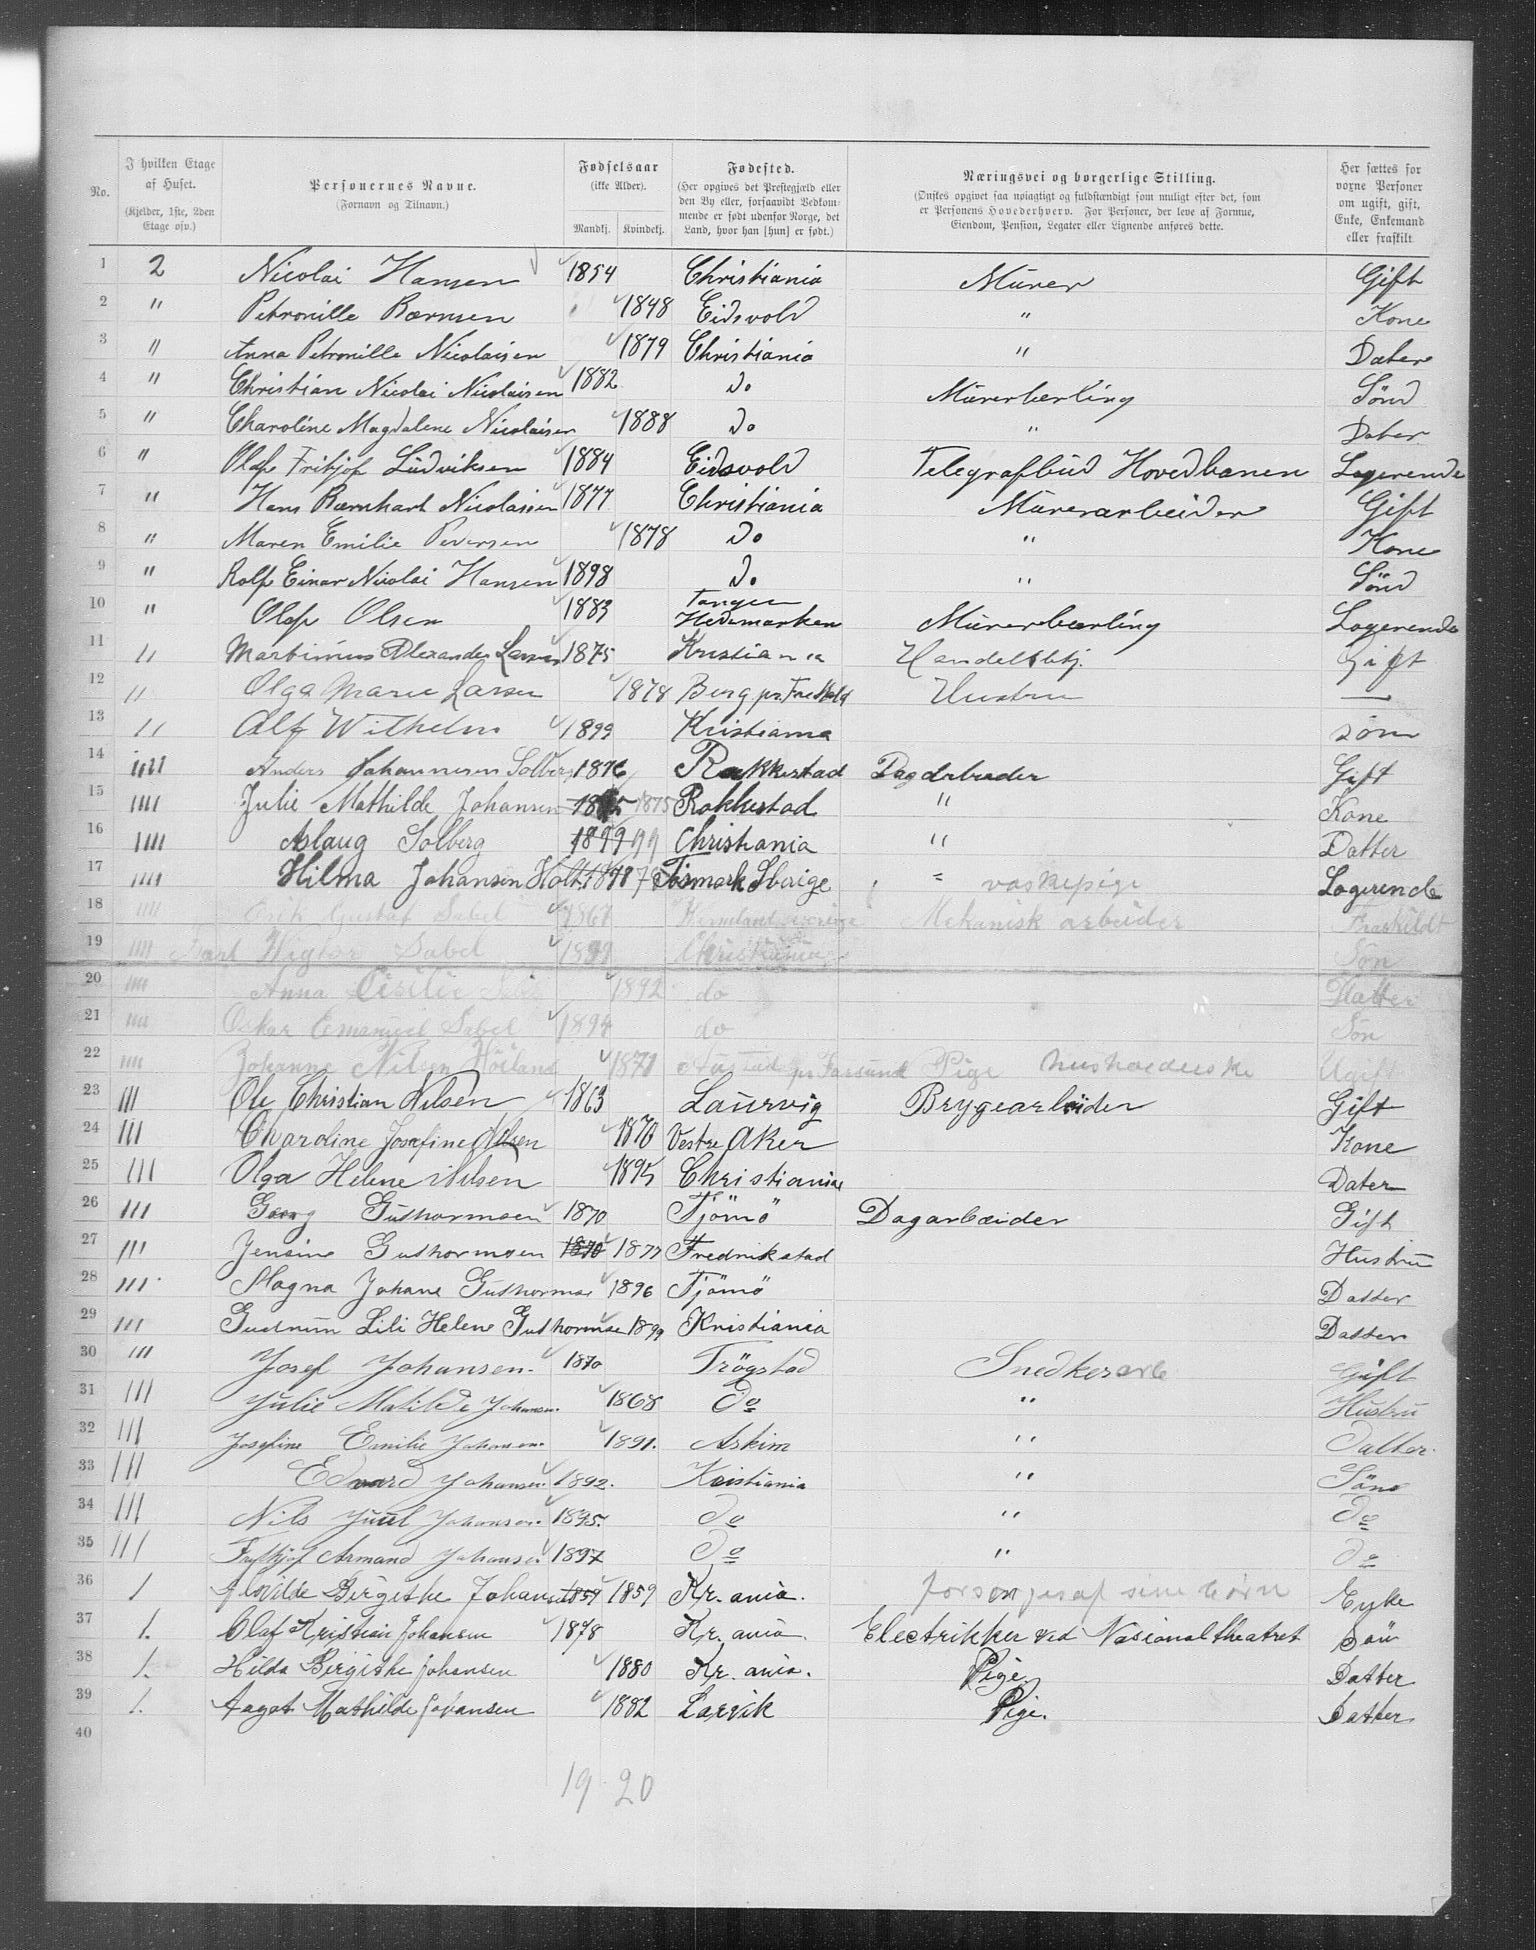 No. | I hvilken Etage af Huset. (Kjelder, 1ste, 2den Etage osv.) | Personernes Navne. (Fornavn og Tilnavn.) | Fødselsaar (ikke Alder). Mandkj. Kvindekj. | Fødested. (Her opgives det Prestegjæld eller den By eller, forsaavidt Vedkommende er født udenfor Norge, det Land, hvor han [hun] er født.) | Næringsvei og borgerlige Stilling. (Ønskes opgivet saa nøiagtigt og fuldstændigt som muligt efter det, som er Personens Hovederhverv. For Personer, der leve af Formue, Eiendom, Pension, Legater eller Lignende anføres dette. | Her sættes for voxne Personer om ugift, gift, Enke, Enkemand eller fraskilt
1 2 Nicolai Hansen 1854 Christiania Murer Gift
2 " Petronille Bærnsen 1848 Eidsvold " Kone
3 " Anna Petronille Nicolaisen 1879 Christiania " Dater
4 " Christian Nicolai Nicolaisen 1882 Do Murerlærling Sönd
5 " Charoline Magdalene Nicolaisen 1888 Do " Dater
6 " Olaf Fritjof Ludviksen 1884 Eidsvold Telegrafbud Hovedbanen Logerende
7 " Hans Bærnhart Nicolaisen 1877 Christiania Murerarbeider Gift
8 " Maren Emilie Petersen 1878 Do " Kone
9 " Rolf Einar Nicolai Hansen 1898 Do " Sönd
10 " Olaf Olsen 1883 Tangen Hedemarken Murerlærling Logerende
11 " Martinius Alexander Larsen 1875 Kristiania Handelsbtj. Gift
12 " Olga Marie Larsen 1878 Berg pr. Fredhald Hustru —
13 " Alf Wilhelm 1899 Kristiania søn
14 "" Anders Johannesen Solberg 1876 Rakkestad Dagarbeider Gift
15 "" Julie Mathilde Johansen 1875 1875 Rakkestad " Kone
16 "" Aslaug Solberg 1899 99 Christiania " Datter
17 "" Hilma Johansen Holt 1878 78 Tosmark Sverige " vaskepige Logerende
18 "" Erik Gustaf Sabel 1867 Vermland sverige Mekanisk arbeider Fraskildt
19 "" Karl Sabel Christiania Søn
20 "" Anna Cisilie Sabel 1892 do Datter
21 "" Oskar Emanuel Sabel 1894 do Søn
22 "" Johanne Nilsen Höiland 1871 pr Farsund Pige husholderske Ugift
23 ||| Ole Christian Nilsen 1863 Laurvig Bryggearbeider Gift
24 ||| Charoline Josefine Nilsen 1870 Vestre Aker Kone
25 ||| Olga Helene Nilsen 1895 Christiania Dater
26 ||| Georg Guthormsen 1870 Tjömö Dagarbeider Gift
27 ||| Jensine Guthormsen 1870 1877 Fredrikstad Hustru
28 ||| Magna Johane Guthormse 1896 Tjömö Datter
29 ||| Gudrun Lili Helene Guthormse 1899 Kristiania Datter
30 ||| Josef Johansen. 1870 Trögstad Snedkerarb Gift
31 ||| Julie Matilde Johansen. 1868 Do " Hustru
32 ||| Josefine Emilie Johansen. 1891. Askim " Datter.
33 ||| Edvard Johansen. 1892. Kristiania " Sön
34 ||| Nils Juul Johansen. 1895. Do " Do
35 ||| Frithjof Armand Johansen 1897 Do " Do
36 1 Alvilde Birgithe Johansen 1859 1859 Kr. ania. forsørges af sine børn Enke
37 1. Olaf Kristian Johansen 1878 Kr. ania. Electrikker ved Nasionaltheatret Sön
38 1. Hilda Birgithe Johansen 1880 Kr. ania. Pige Datter
39 1. Aagot Mathilde Johansen 1882 Larvik Pige. Datter
40
19 - 20